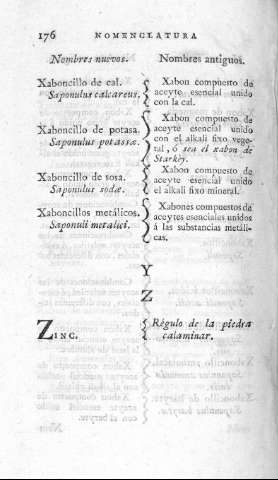 176 NOMENCLATURA
Nombres nuevos. Nombres antiguos.
Xaboncillo de cal.
Saponulus calcareus.
Xabon compuesto de
aceyte esencial unido
con la cal.
Xaboncillo de potasa.
Saponulus potassæ.
Xabon compuesto de
aceyte esencial unido
con el alkali fixo vege-
tal, ó sea el xabon de
Starkey.
Xaboncillo de sosa.
Saponulus sodæ.
Xabon compuesto de
aceyte esencial unido
el alkali fixo mineral.
Xaboncillos metálicos.
Saponuli metalici.
Xabones compuestos de
aceytes esenciales unidos
á las substancias metáli-
cas.
Y
Z
ZINC.
Régulo de la piedra
calaminar.